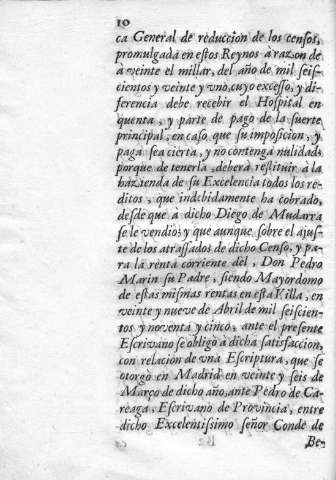 10
ca General de reduccion de los censos,
promulgada en estos Reynos à razon de
à veinte el millar, del año de mil seis-
cientos y veinte y vno, cuyo excesso, y di-
ferencia debe recebir el Hospital en
quenta, y parte de pago de la suerte
principal, en caso que su imposicion, y
paga sea cierta, y no contenga nulidad,
porque de tenerla, deberà restituir à la
hazienda de su Excelencia todos los re-
ditos, que indebidamente ha cobrado,
desde que à dicho Diego de Mudarra
se le vendiò; y que aunque sobre el ajus-
te de los atrassados de dicho Censo, y pa-
ra la renta corriente dèl, Don Pedro
Marin su Padre, siendo Mayordomo
de estas mismas rentas en esta Villa, en
veinte y nueve de Abril de mil seiscien-
tos y noventa y cinco, ante el presente
Escrivano se obligò à dicha satisfaccion,
con relacion de vna Escriptura, que se
otorgò en Madrid en veinte y seis de
Março de dicho año, ante Pedro de Ca-
reaga, Escrivano de Provincia, entre
dicho Excelentissimo señor Conde de
Be-